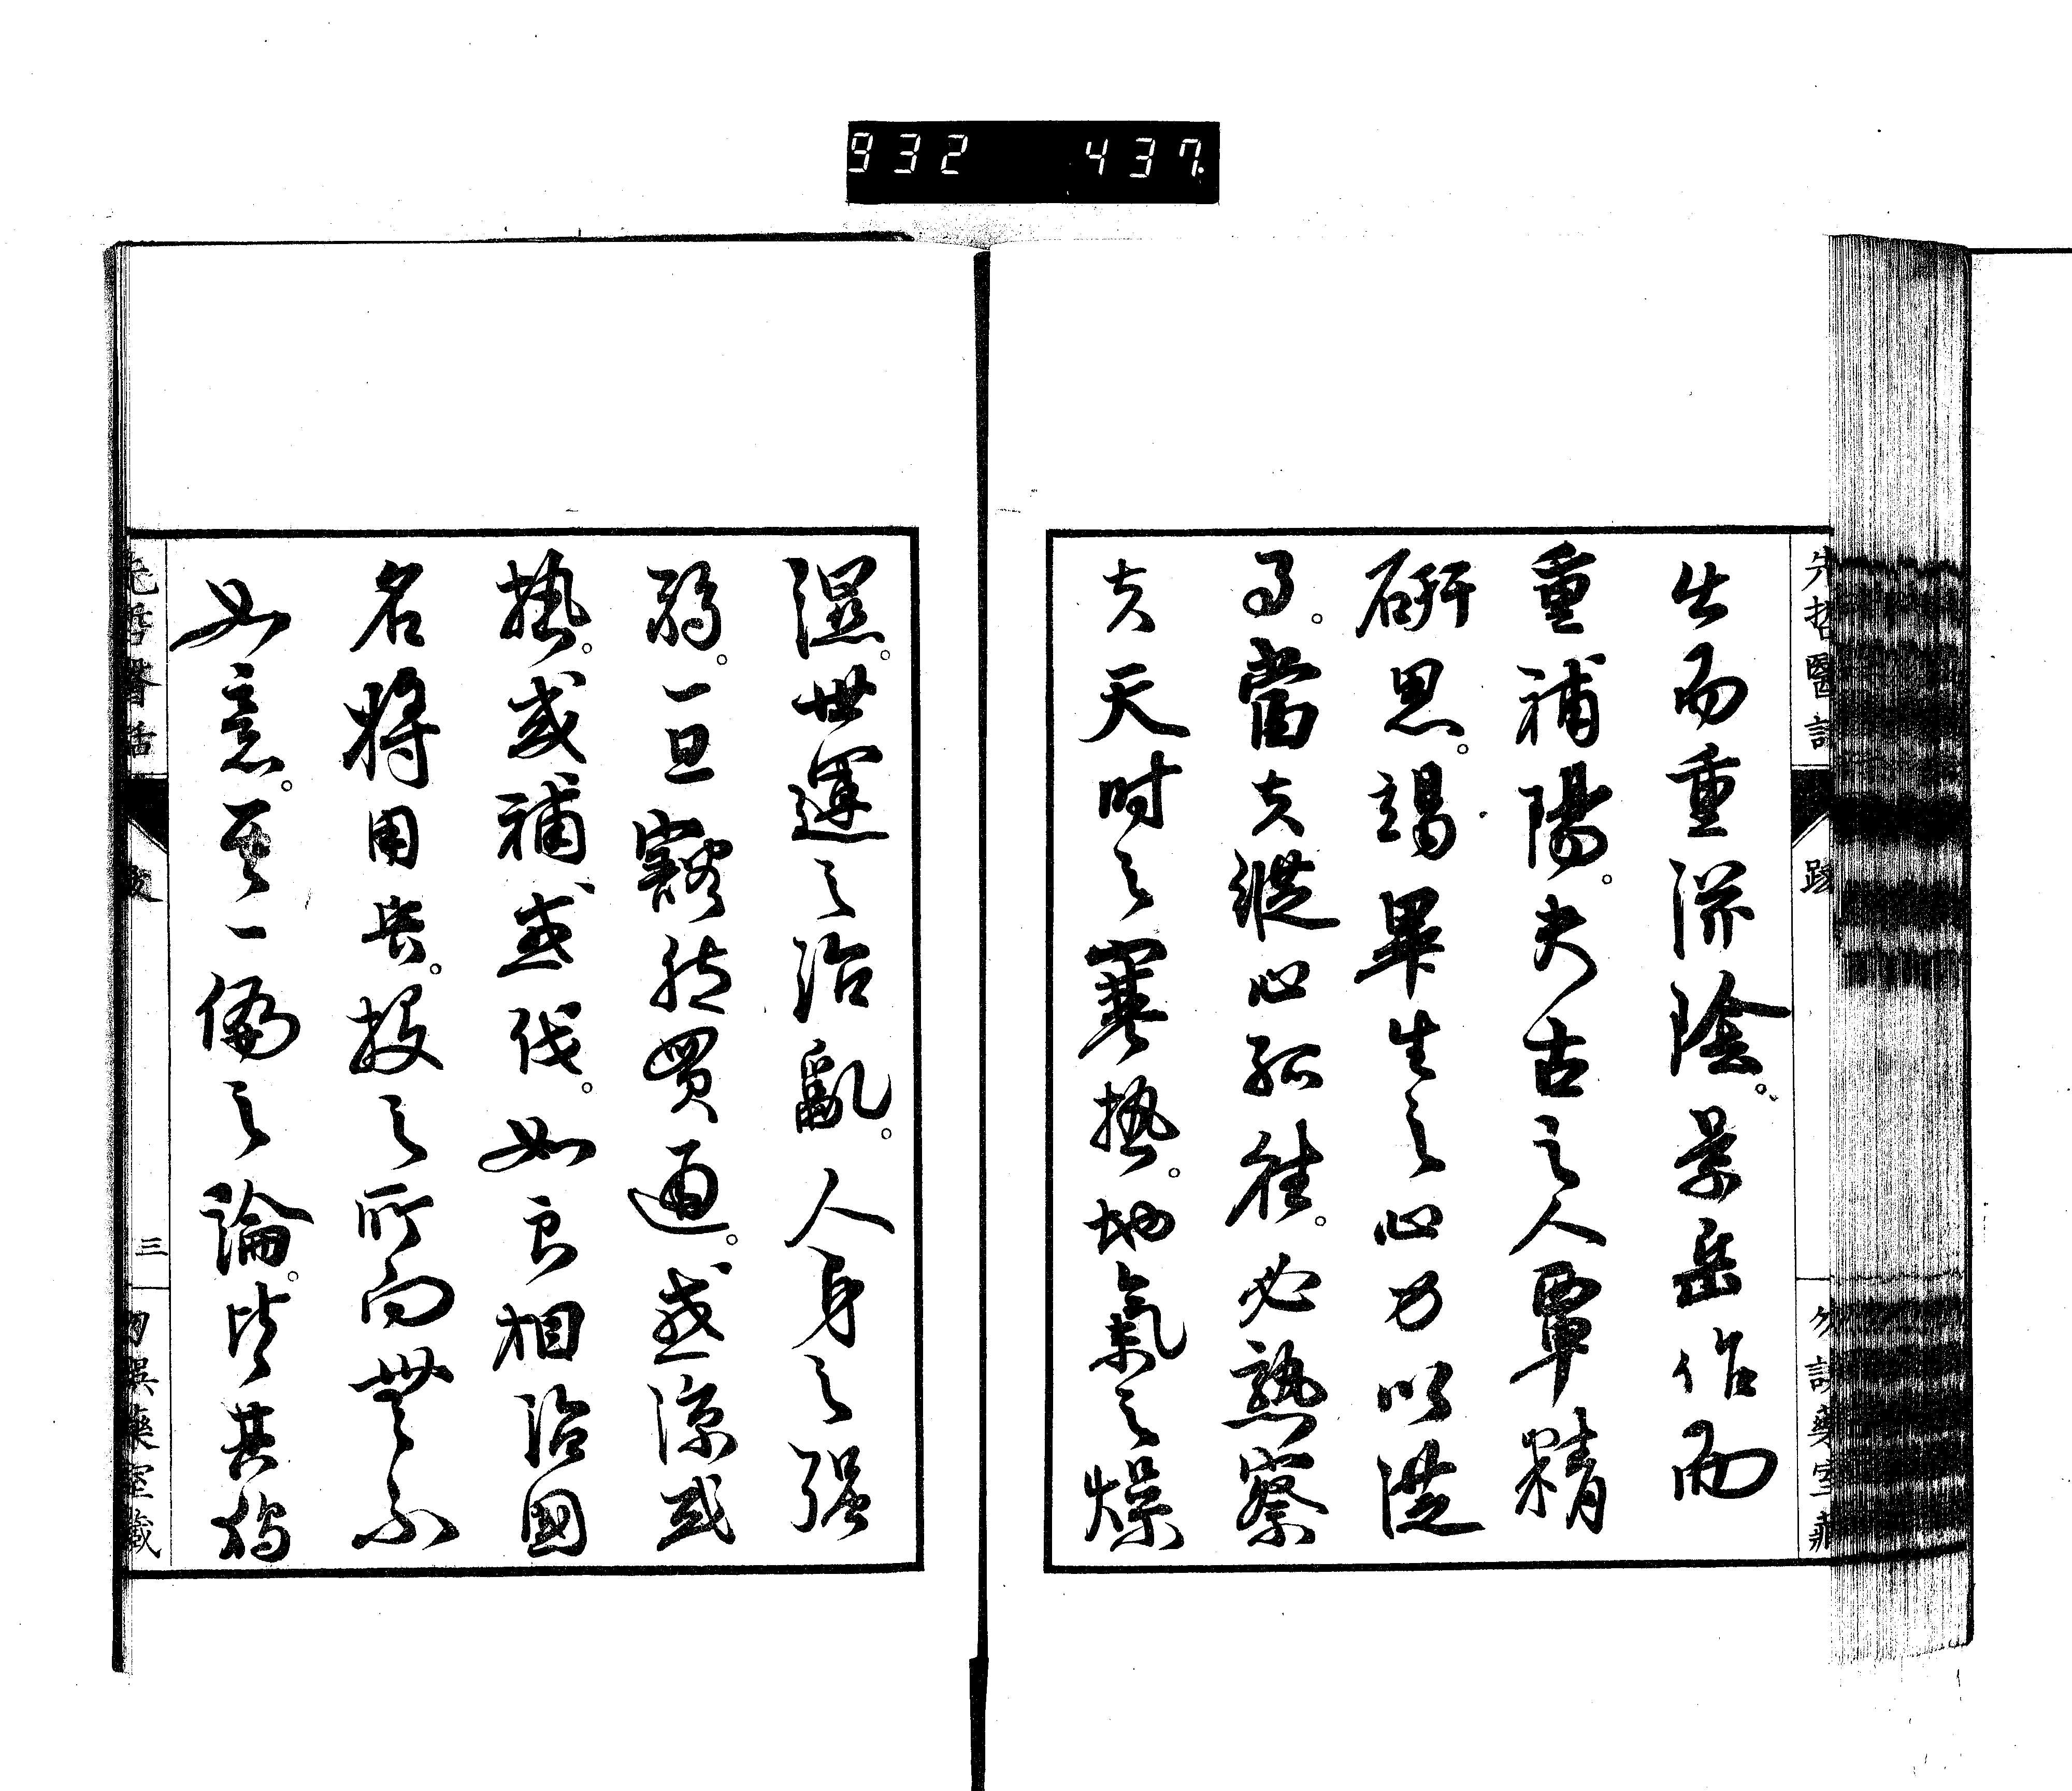 932 437
先哲醫話 跋 勿誤藥室藏
出而重滋陰。景岳作而
重補陽。夫古之人覃精
研思。竭畢生之心力以從
事。當其縱心孤往。必熟察
其天時之寒熱。地氣之燥
濕。世運之治亂。人身之強
弱。一旦豁然貫通。或涼或
熱。或補或伐。如良相治國
名將用兵。投之所向無不
如意。一偏之論。皆其獨
先哲醫話 跋 三 勿誤藥室藏